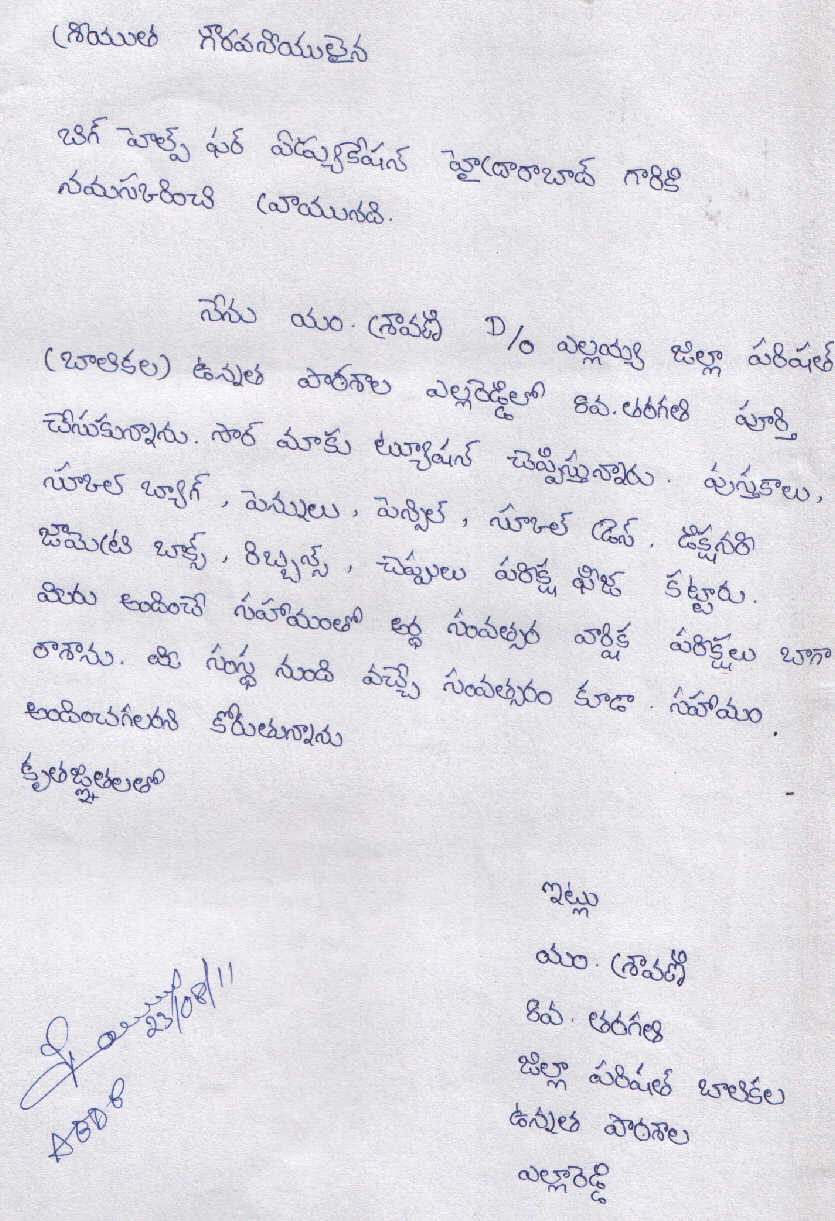 శ్రీయుత గౌరవనీయులైన
బిగ్ హెల్ప్ ఫర్ ఏడ్యుకేషన్ హైద్రాబాద్ గారికి
నమస్కరించి వ్రాయునది.
నేను యం. శ్రావణి D/o ఎల్లయ్య జిల్లా పరిషత్
(బాలికల) ఉన్నత పాఠశాల ఎల్లారెడ్డిలో 8వ.తరగతి పూర్తి
చేసుకున్నాను. సార్ మాకు ట్యూషన్ చెప్పిస్తున్నారు. పుస్తకాలు,
స్కూల్ బ్యాగ్, పెన్నులు, పెన్సిల్, స్కూల్ డ్రెస్. డిక్షనరి
జామెట్రి బాక్స్, రిబ్బన్స్, చెప్పులు పరిక్ష ఫీజ్ కట్టారు.
మీరు అందించే సహాయంతో అర్ధ సంవత్సర వార్షిక పరిక్షలు బాగా
రాశాను. మీ సంస్థ నుండి వచ్చే సంవత్సరం కూడా. సహాయం
అందించగలరని కోరుతున్నాను
కృతజ్ఞతలతో
ఇట్లు
యం. శ్రావణి
8వ. తరగతి
జిల్లా పరిషత్ బాలికల
ఉన్నత పాఠశాల
ఎల్లారెడ్డి
23/08/11